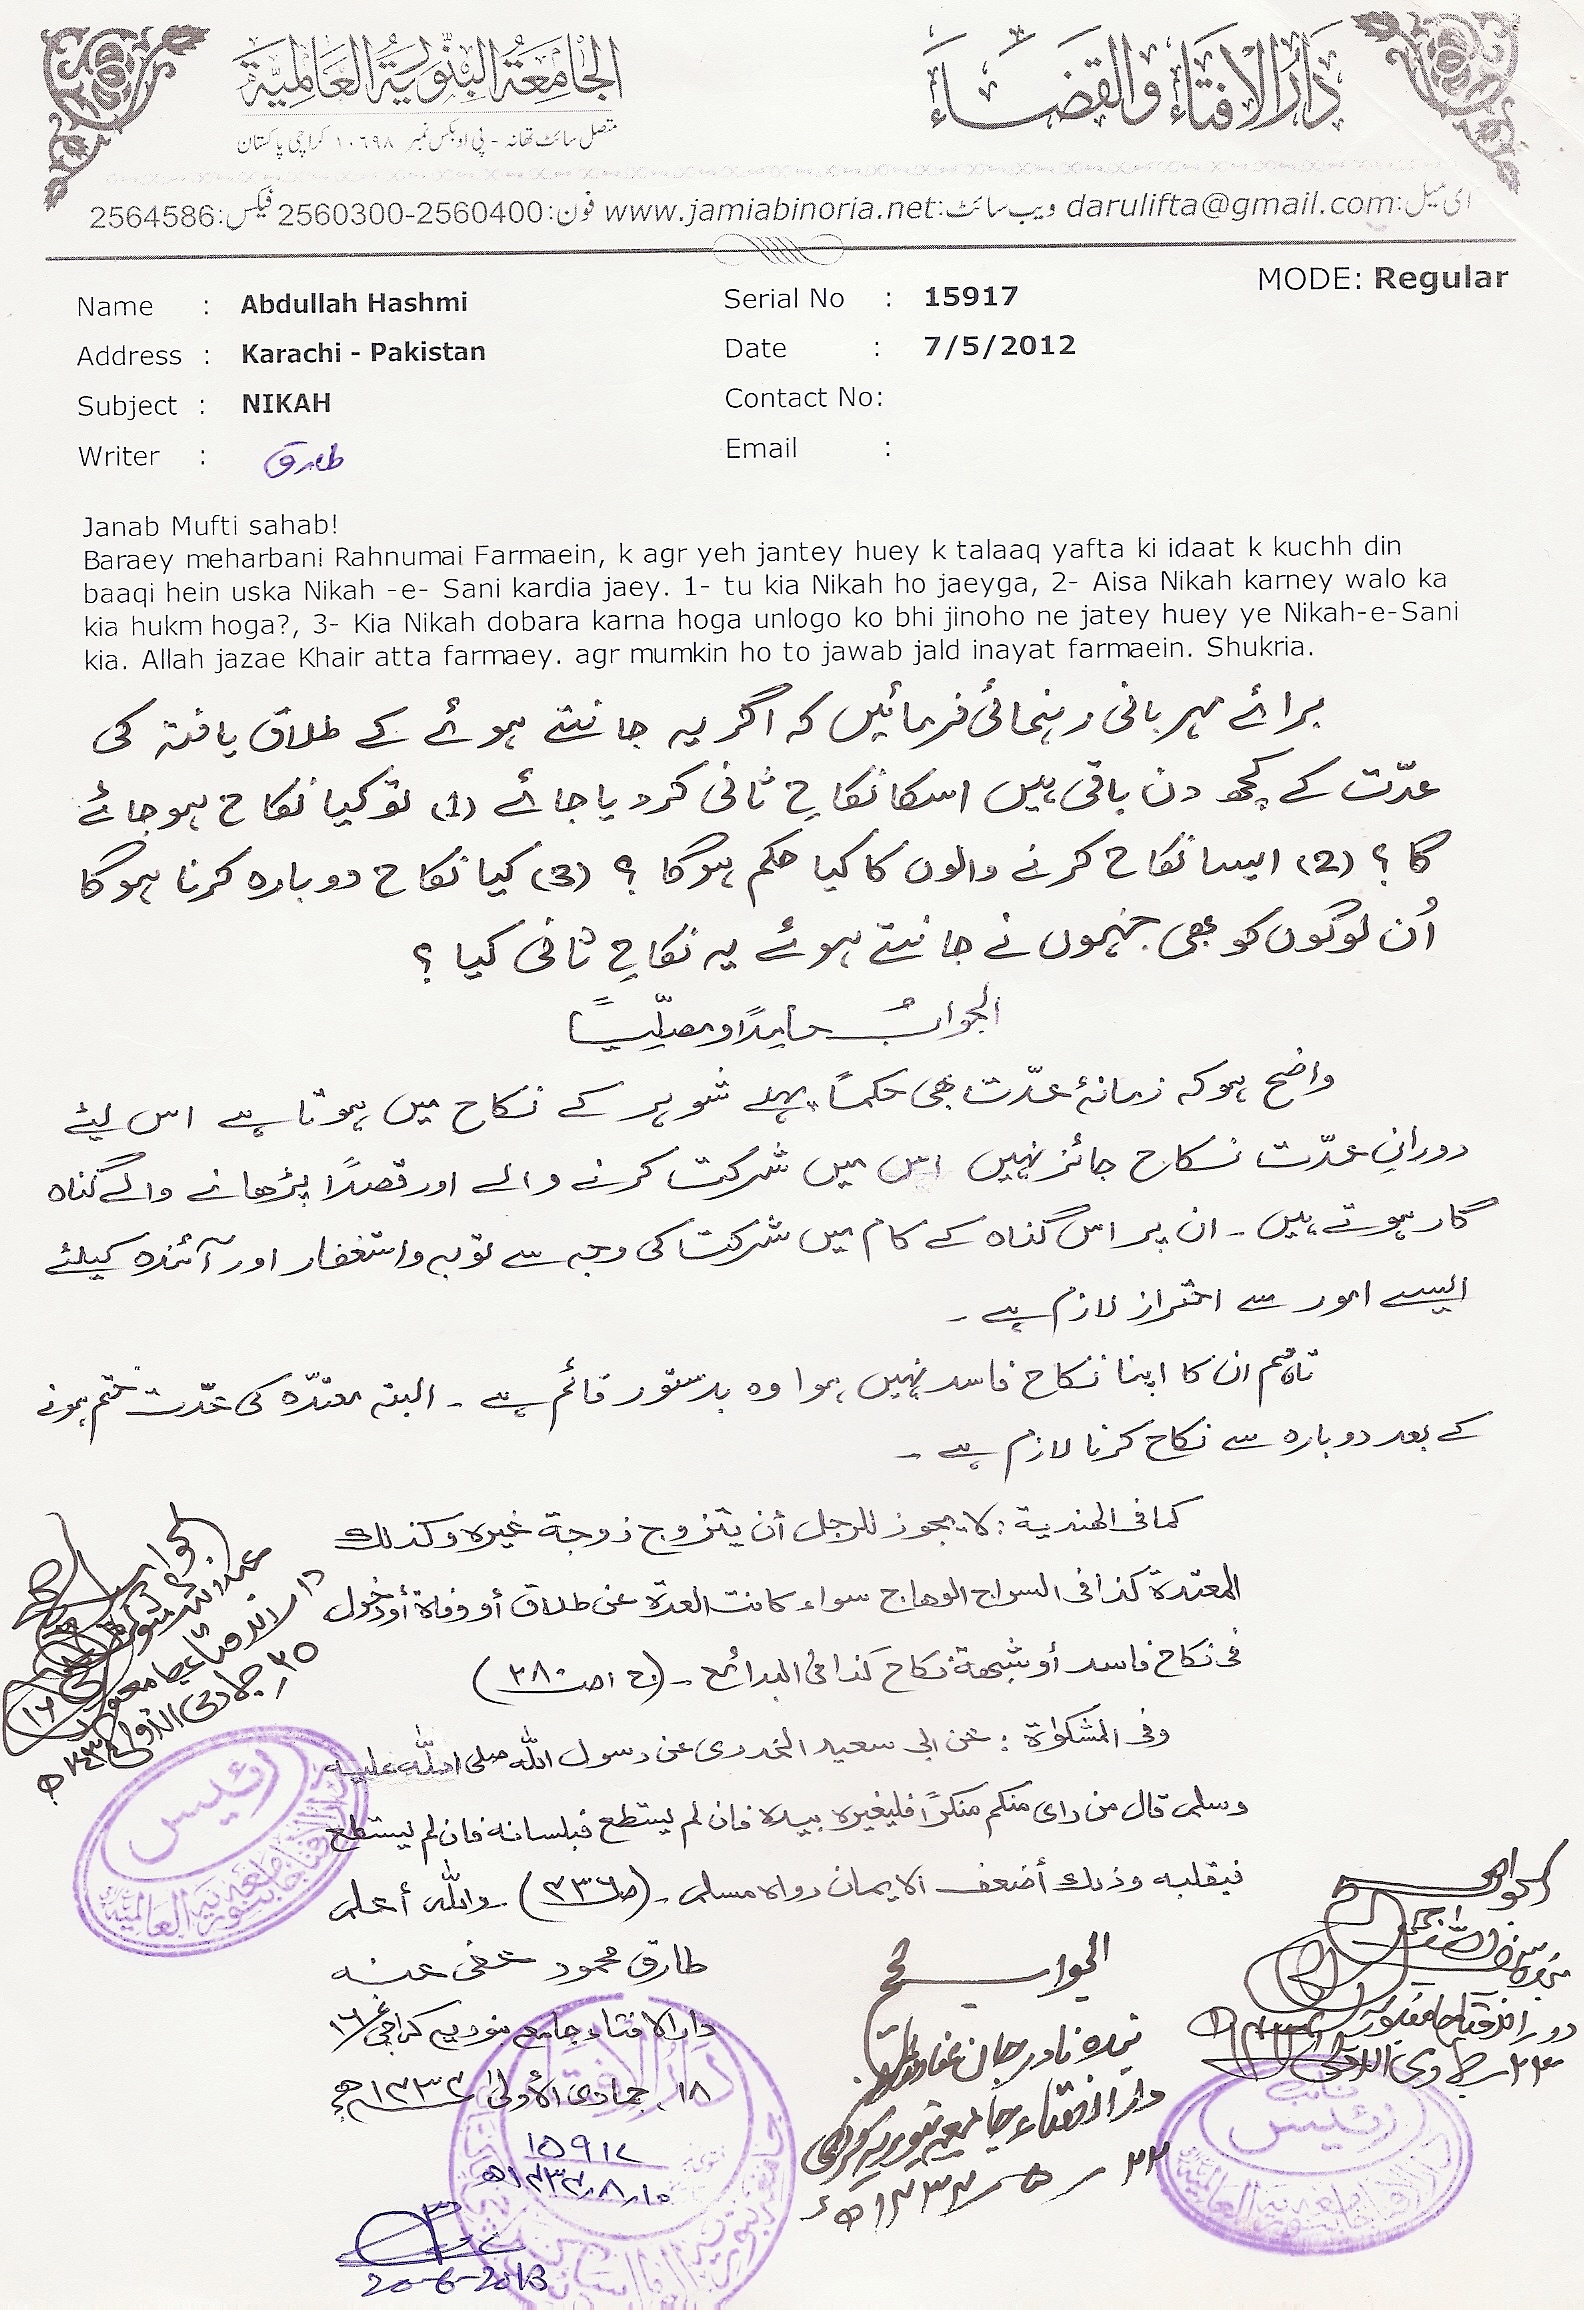 دَارُ الاِفتَاء والقَضَاء
الجَامِعَة البِنّورِيَة العَالمِيَّة
متصل سائٹ تھانہ - پی او بکس نمبر ۱۰٦۹۸ کراچی پاکستان
ای میل:darulifta@gmail.com ویب سائٹ:www.jamiabinoria.net فون:2560300-2560400 فیکس:2564586
MODE: Regular
Name : Abdullah Hashmi Serial No : 15917
Address : Karachi - Pakistan Date : 7/5/2012
Subject : NIKAH Contact No:
Writer : طارق Email :
Janab Mufti sahab!
Baraey meharbani Rahnumai Farmaein, k agr yeh jantey huey k talaaq yafta ki idaat k kuchh din
baaqi hein uska Nikah -e- Sani kardia jaey. 1- tu kia Nikah ho jaeyga, 2- Aisa Nikah karney walo ka
kia hukm hoga?, 3- Kia Nikah dobara karna hoga unlogo ko bhi jinoho ne jatey huey ye Nikah-e-Sani
kia. Allah jazae Khair atta farmaey. agr mumkin ho to jawab jald inayat farmaein. Shukria.
برائے مہربانی رہنمائی فرمائیں کہ اگر یہ جانتے ہوئے کے طلاق یافتہ کی
عدّت کے کچھ دن باقی ہیں اسکا نکاحِ ثانی کردیا جائے (1) تو کیا نکاح ہوجائے
گا؟ (2) ایسا نکاح کرنے والوں کا کیا حکم ہوگا؟ (3) کیا نکاح دوبارہ کرنا ہوگا
اُن لوگوں کو بھی جنہوں نے جانتے ہوئے یہ نکاحِ ثانی کیا؟
الجوابُ حامدًا ومصلّیًا
واضح ہو کہ زمانۂ عدّت بھی حکماً پہلے شوہر کے نکاح میں ہوتا ہے اس لیئے
دورانِ عدّت نکاح جائز نہیں اس میں شرکت کرنے والے اور قصداً پڑھانے والے گناہ
گار ہوتے ہیں۔ ان پر اس گناہ کے کام میں شرکت کی وجہ سے توبہ واستغفار اور آئندہ کیلئے
ایسے امور سے احتراز لازم ہے۔
تاہم ان کا اپنا نکاح فاسد نہیں ہوا وہ بدستور قائم ہے۔ البتہ معتدّہ کی عدّت ختم ہونے
کے بعد دوبارہ سے نکاح کرنا لازم ہے۔
كما فى الهندية: لا يجوز للرجل أن يتزوج زوجة غيره وكذلك
المعتدة كذا فى السراج الوهاج سواء كانت العدة عن طلاق أو وفاة أو دخول
فى نكاح فاسد أو شبهة نكاح كذا فى البدائع۔ (ج۱ ص۲۸۰)
وفى المشكوٰة: عن ابى سعيد الخدرى عن رسول الله صلى الله عليه
وسلم قال من راى منكم منكرًا فليغيره بيده فان لم يستطع فبلسانه فان لم يستطع
فبقلبه وذلك أضعف الايمان رواه مسلم۔ (ص۴۳٦)۔ والله أعلم
طارق محمود عفی عنہ
دار الافتاء جامعہ بنوریہ کراچی ۱٦
۱۸ جمادی الأولیٰ ۱۴۳۳ھ
۱۵۹۱۷
20-6-2013
الجواب صحیح
بندہ نادر جان عفا اللہ عنہ
دار الافتاء جامعہ بنوریہ کراچی
الجواب صحیح
دار الافتاء جامعہ بنوریہ
الجواب صحیح
رئیس
نائب رئیس